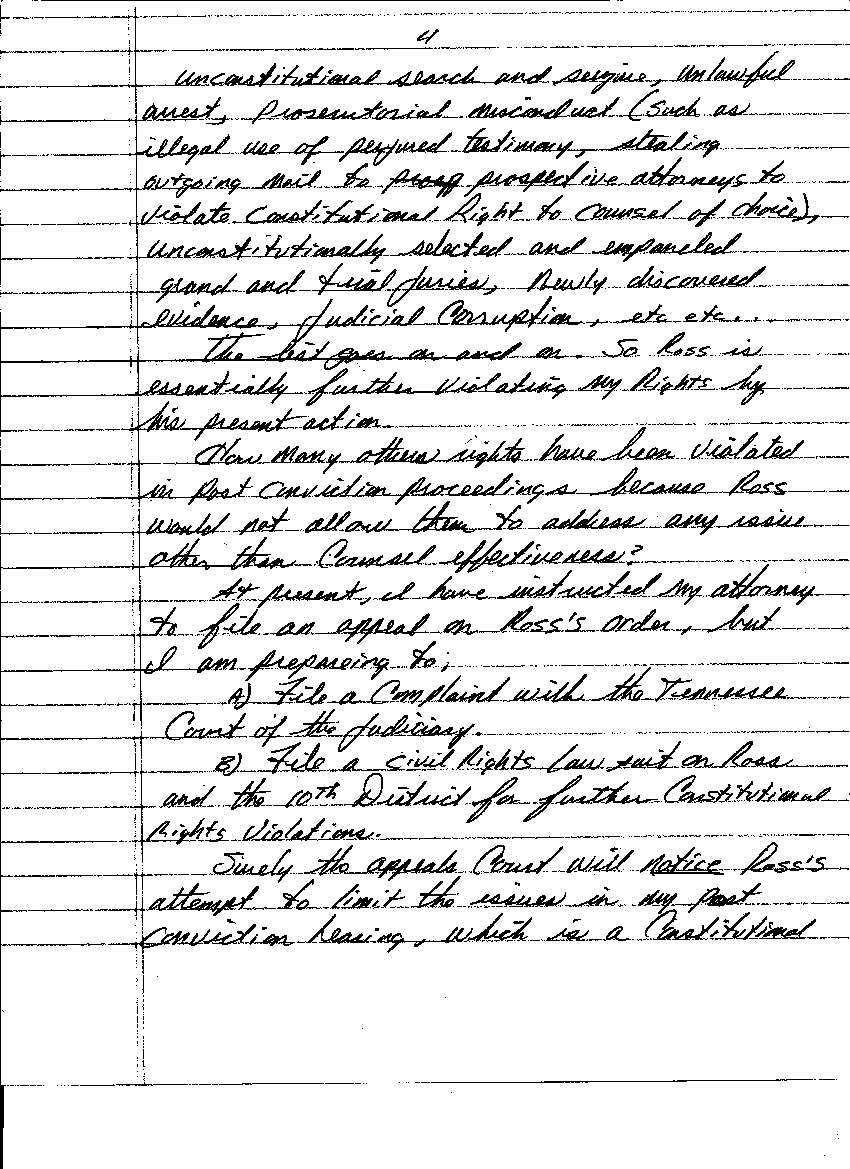 4
unconstitutional search and seizure, unlawful
arrest, Prosecutorial misconduct (such as
illegal use of perjured testimony, stealing
outgoing mail to prosp prospective attorneys to
violate Constitutional Right to counsel of choice),
unconstitutionally selected and empaneled
grand and trial Juries, Newly discovered
evidence, Judicial Corruption, etc etc...
The list goes on and on. So Ross is
essentially further violating my Rights by
his present action.
How many others rights have been violated
in Post Conviction proceedings because Ross
would not allow them to address any issue
other than Counsel effectiveness?
At present, I have instructed my attorney
to file an appeal on Ross's order, but
I am prepareing to;
A) File a Complaint with the Tennessee
Court of the Judiciary.
B) File a Civil Rights Law suit on Ross
and the 10th District for further Constitutional
Rights Violations.
Surely the appeals Court will notice Ross's
attempt to limit the issues in my post
Conviction hearing, which is a Constitutional